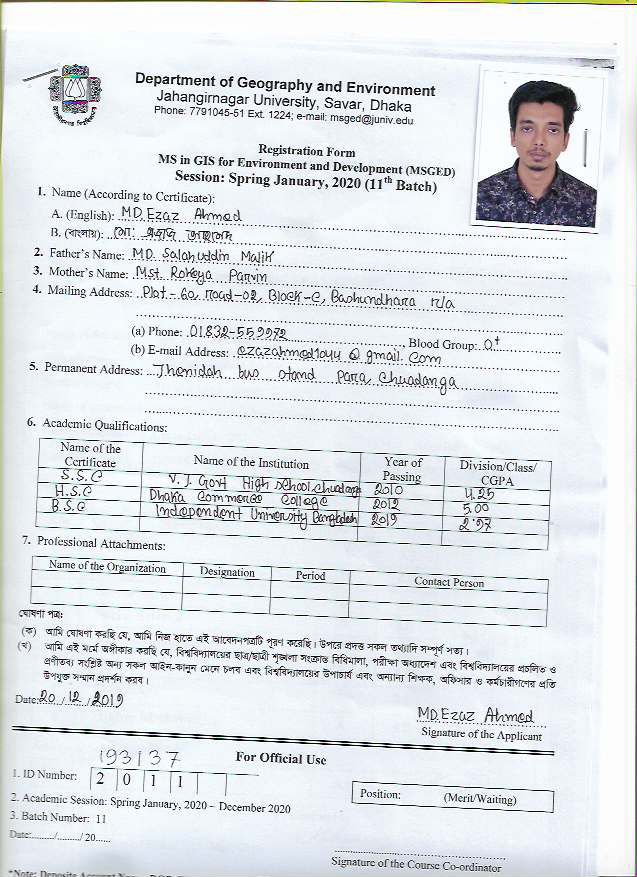 Department of Geography and Environment
Jahangirnagar University, Savar, Dhaka
Phone: 7791045-51 Ext. 1224; e-mail: msged@juniv.edu
Registration Form
MS in GIS for Environment and Development (MSGED)
Session: Spring January, 2020 (11th Batch)
1. Name (According to Certificate):
A. (English): MD. Ezaz Ahmed
B. (বাংলায়): মো: এজাজ আহমেদ
2. Father's Name: MD. Salahuddin Malik
3. Mother's Name: Mst. Rokeya Parvin
4. Mailing Address: Plot-60, road-02, Block-C, Bashundhara r/a
(a) Phone: 01832-559972, Blood Group: O+
(b) E-mail Address: ezazahmed1044@gmail.com
5. Permanent Address: Jhenidah bus stand para, Chuadanga
6. Academic Qualifications:
Name of the Certificate Name of the Institution Year of Passing Division/Class/CGPA
S.S.C V. J. Govt High school, chuadanga 2010 4.25
H.S.C Dhaka Commerce College 2012 5.00
B.S.C Independent University Bangladesh 2019 2.97
7. Professional Attachments:
Name of the Organization Designation Period Contact Person
ঘোষণা পত্র:
(ক) আমি ঘোষণা করছি যে, আমি নিজ হাতে এই আবেদনপত্রটি পূরণ করেছি। উপরে প্রদত্ত সকল তথ্যাদি সম্পূর্ণ সত্য।
(খ) আমি এই মর্মে অঙ্গীকার করছি যে, বিশ্ববিদ্যালয়ের ছাত্র/ছাত্রী শৃঙ্খলা সংক্রান্ত বিধিমালা, পরীক্ষা অধ্যাদেশ এবং বিশ্ববিদ্যালয়ের প্রচলিত ও
প্রণীতব্য সংশ্লিষ্ট অন্য সকল আইন-কানুন মেনে চলব এবং বিশ্ববিদ্যালয়ের উপাচার্য এবং অন্যান্য শিক্ষক, অফিসার ও কর্মচারীগণের প্রতি
উপযুক্ত সম্মান প্রদর্শন করব।
Date: 20/12/2019
MD. Ezaz Ahmed
Signature of the Applicant
193137
For Official Use
1. ID Number: 2 0 1 1
Position: (Merit/Waiting)
2. Academic Session: Spring January, 2020 – December 2020
3. Batch Number: 11
Date:......../......../ 20......
Signature of the Course Co-ordinator